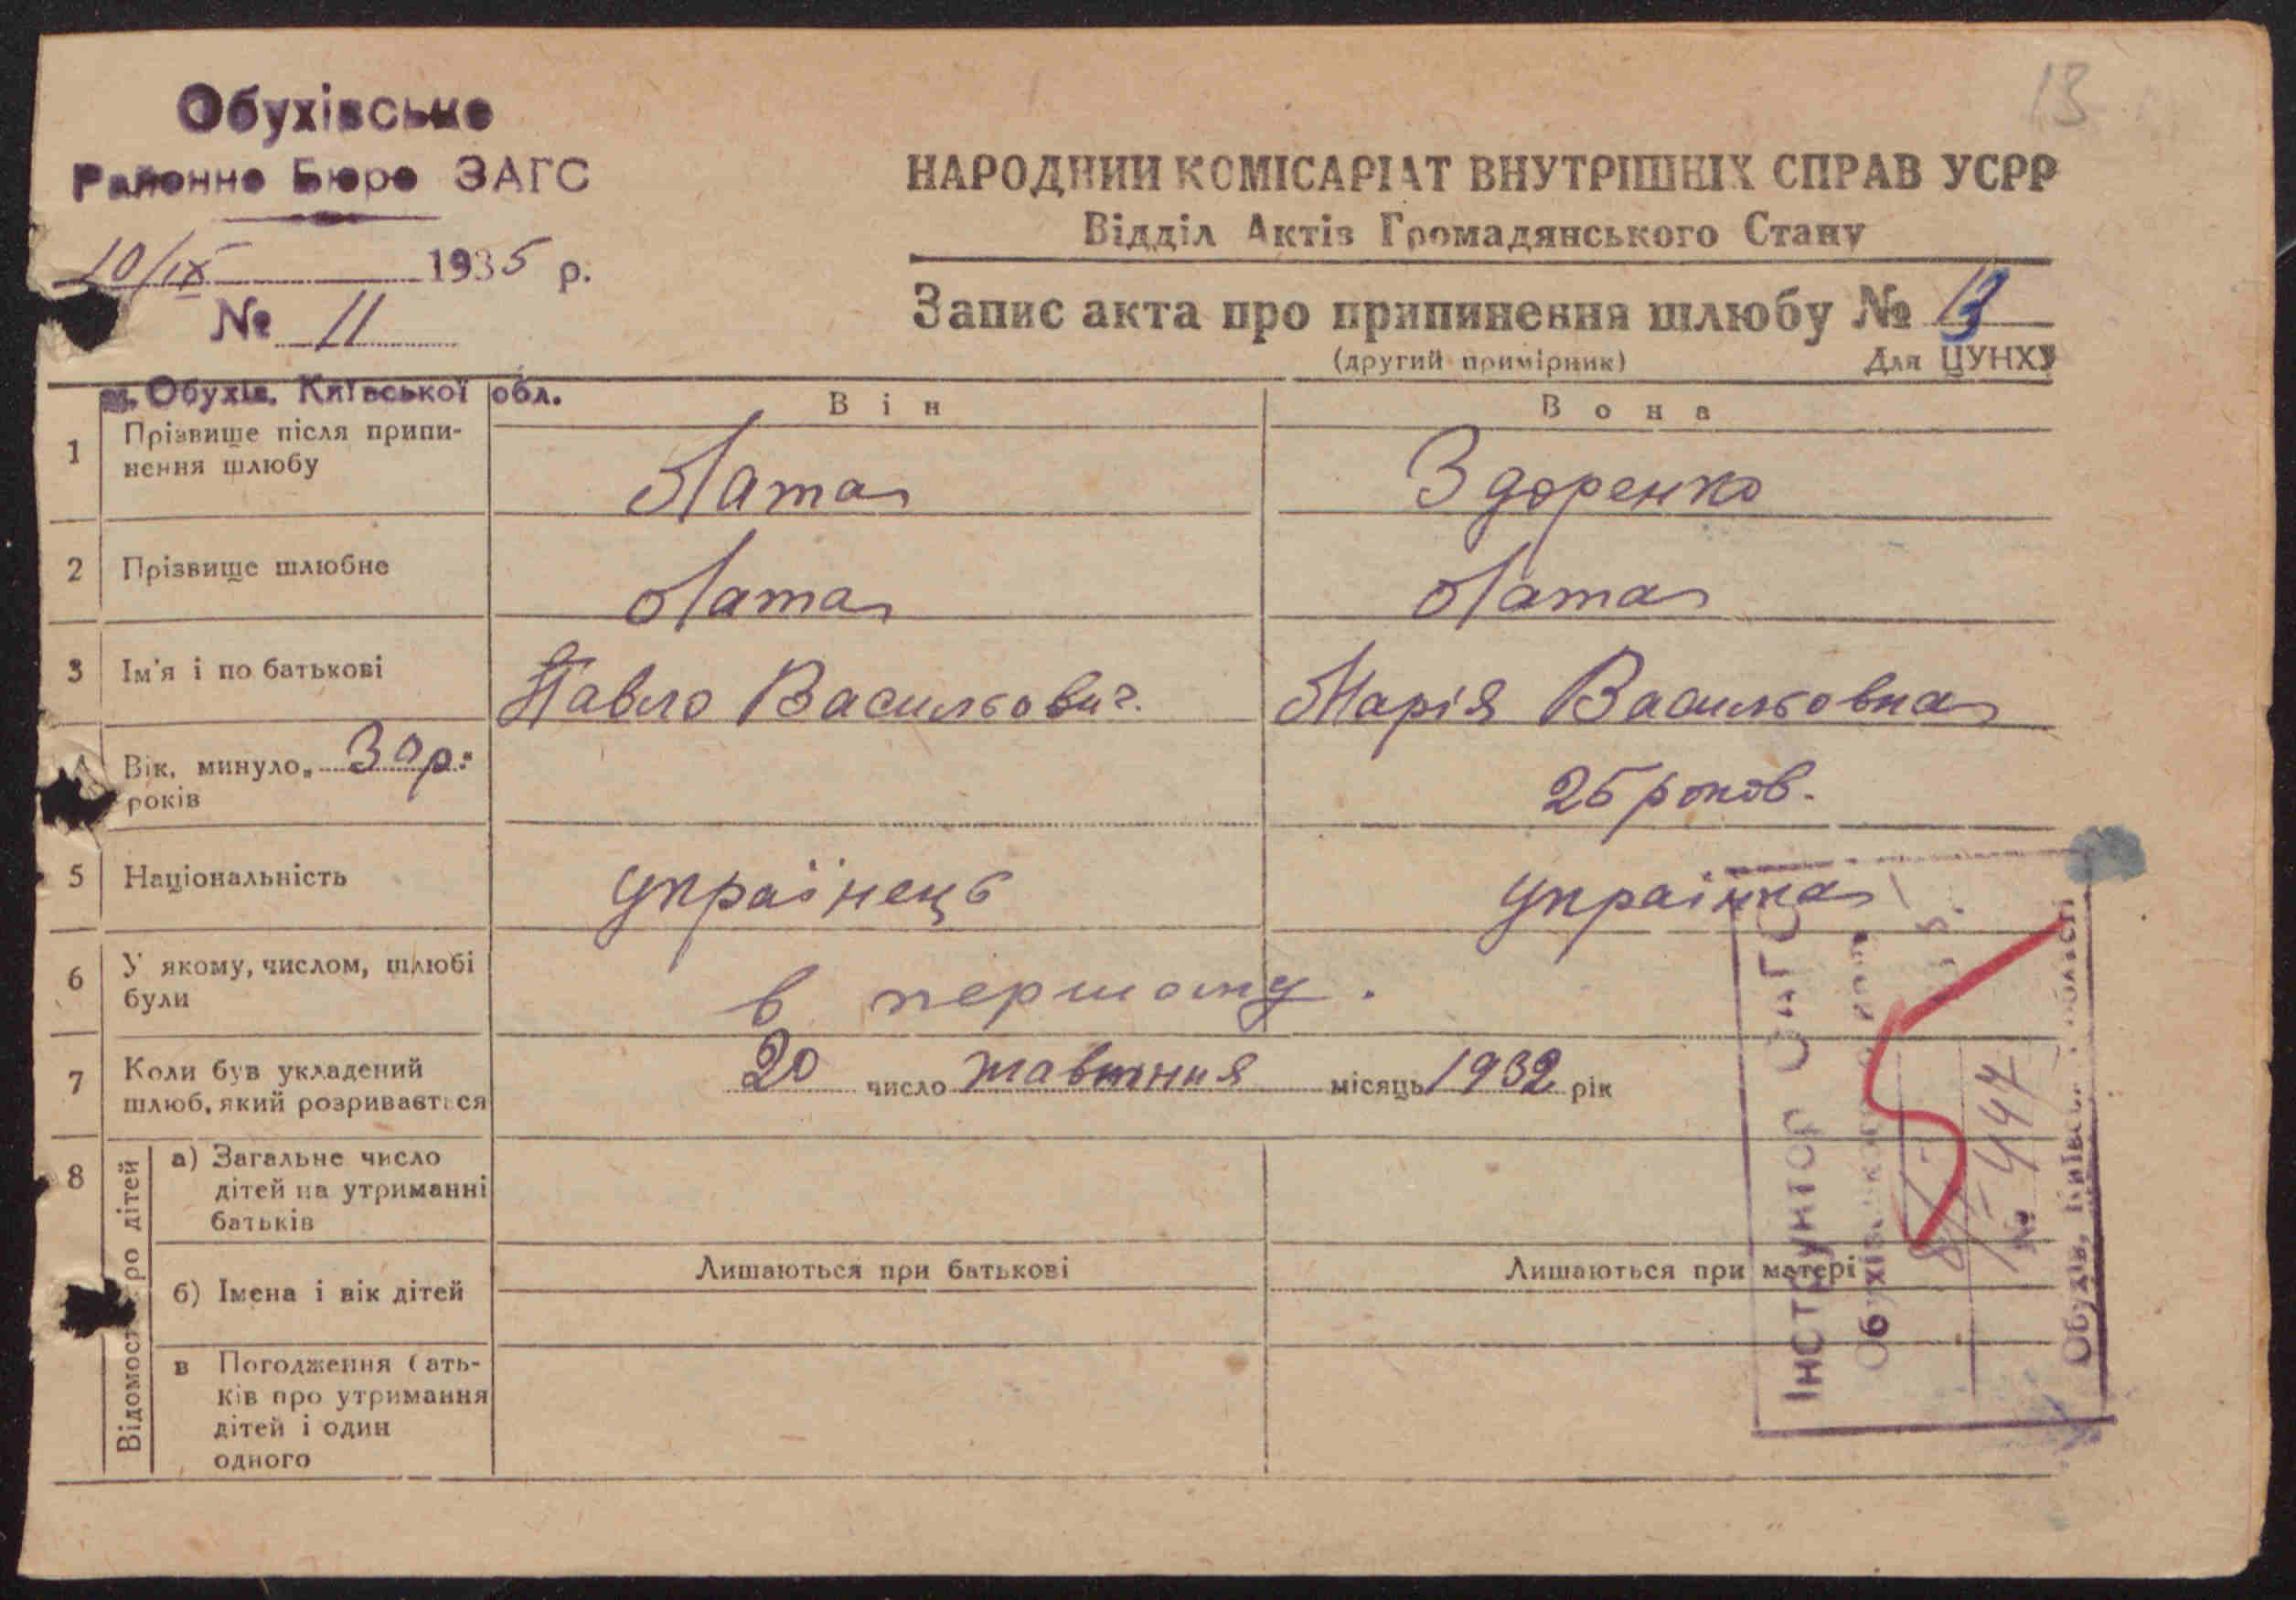 13
Обухівське
Районне Бюро ЗАГС
10/IX 1935 р.
№ 11
м. Обухів, Київської обл.
НАРОДНИЙ КОМІСАРІАТ ВНУТРІШНІХ СПРАВ УСРР
Відділ Актів Громадянського Стану
Запис акта про припинення шлюбу № 13
(другий примірник) Для ЦУНХУ
Він Вона
1 Прізвище після припи-
нення шлюбу Лата Здоренко
2 Прізвище шлюбне Лата Лата
3 Ім'я і по батькові Павло Васильович. Марія Васильовна
4 Вік, минуло 30 р.
років 25 років.
5 Національність українець українка
6 У якому, числом, шлюбі
були в першому.
7 Коли був укладений
шлюб, який розривається 20 число жавтння місяць 1932 рік
8 Відомості про дітей
а) Загальне число
дітей на утриманні
батьків
б) Імена і вік дітей
Лишаються при батькові Лишаються при матері
в Погодження бать-
ків про утримання
дітей і один
одного
Інструктор ЗАГС
Обухівського
№ 447
Обухів, Київської області